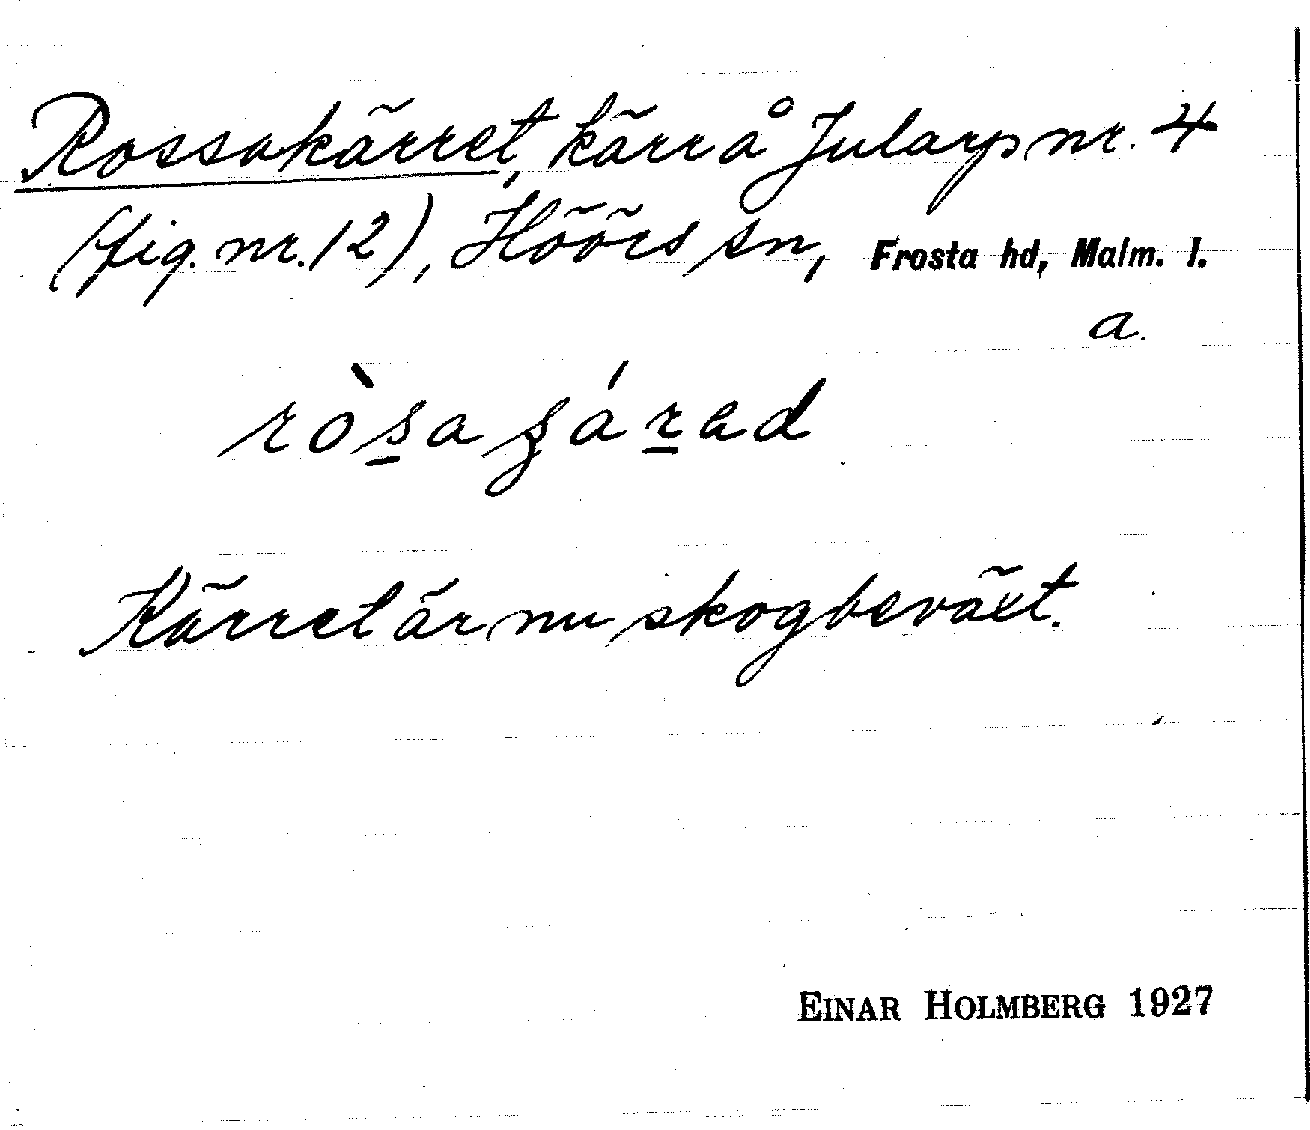 Rossakärret, kärr å Jularp nr. 4
(fig. nr. 12), Höörs sn, Frosta hd, Malm. l.
a.
Kärret är nu skogbeväxt.
EINAR HOLMBERG 1927